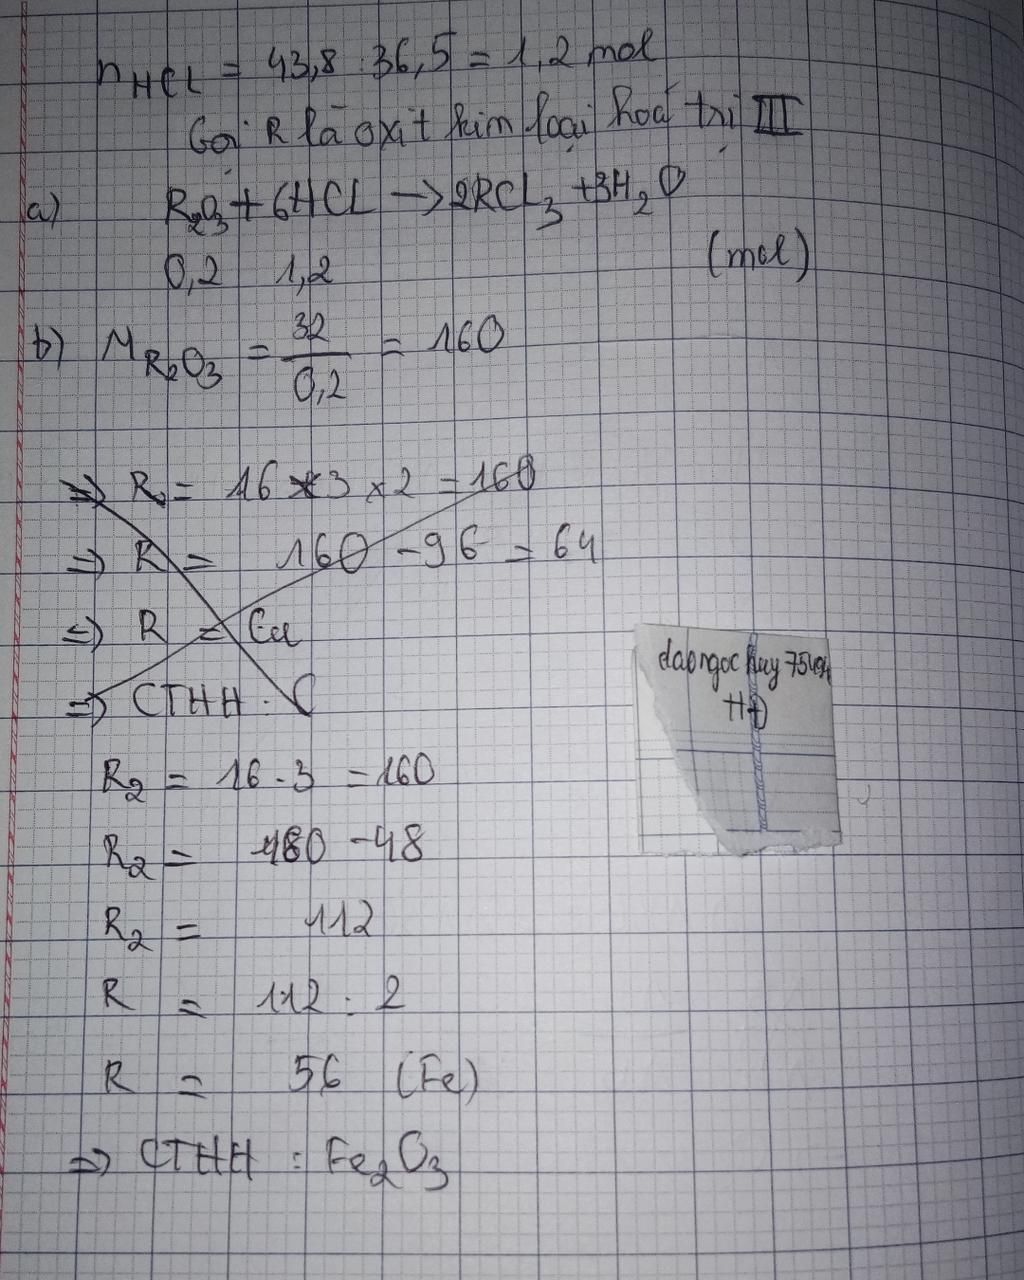 nHCl = 43,8 : 36,5 = 1,2 mol
Gọi R là oxit kim loại hoá trị III
a) R2O3 + 6HCL → 2RCL3 + 3H2O
0,2 1,2 (mol)
b) MR2O3 = 32/0,2 = 160
=> R = 16 x 3 x 2 = 160
=> R = 160 - 96 = 64
=> R = Cu
=> CTHH : C
R2 = 16 . 3 = 160
R2 = 160 - 48
R2 = 112
R = 112 : 2
R = 56 (Fe)
=> CTHH : Fe2O3
daongoc huy
HĐ